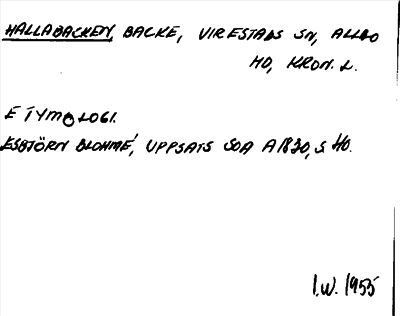 HALLABACKEN, BACKE, VIRESTADS SN, ALLBO
HD, KRON. L.
ETYMOLOGI.
ESBJÖRN BLOHMÉ, UPPSATS SOA A1830, S 40.
I.W. 1955